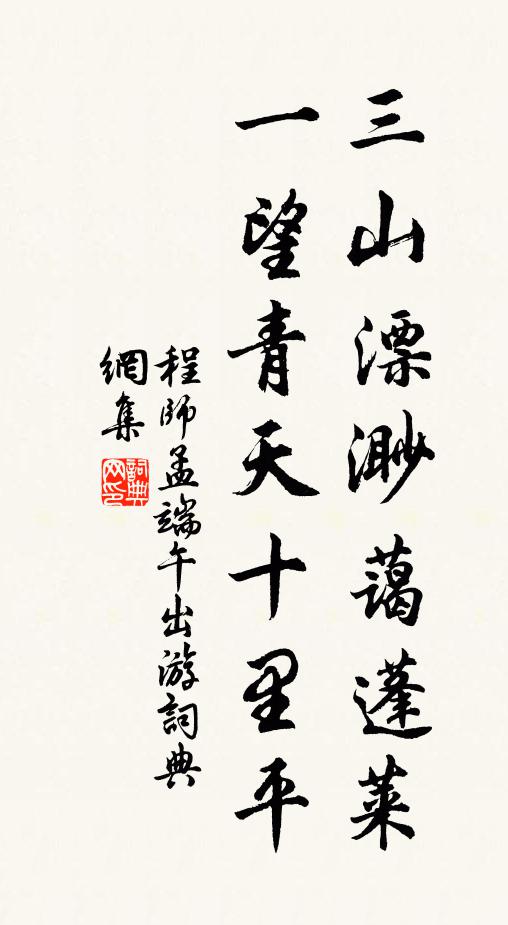 三山漂渺蔼蓬莱
一望青天十里平
程師孟端午出游詞典
網集
詞典网印